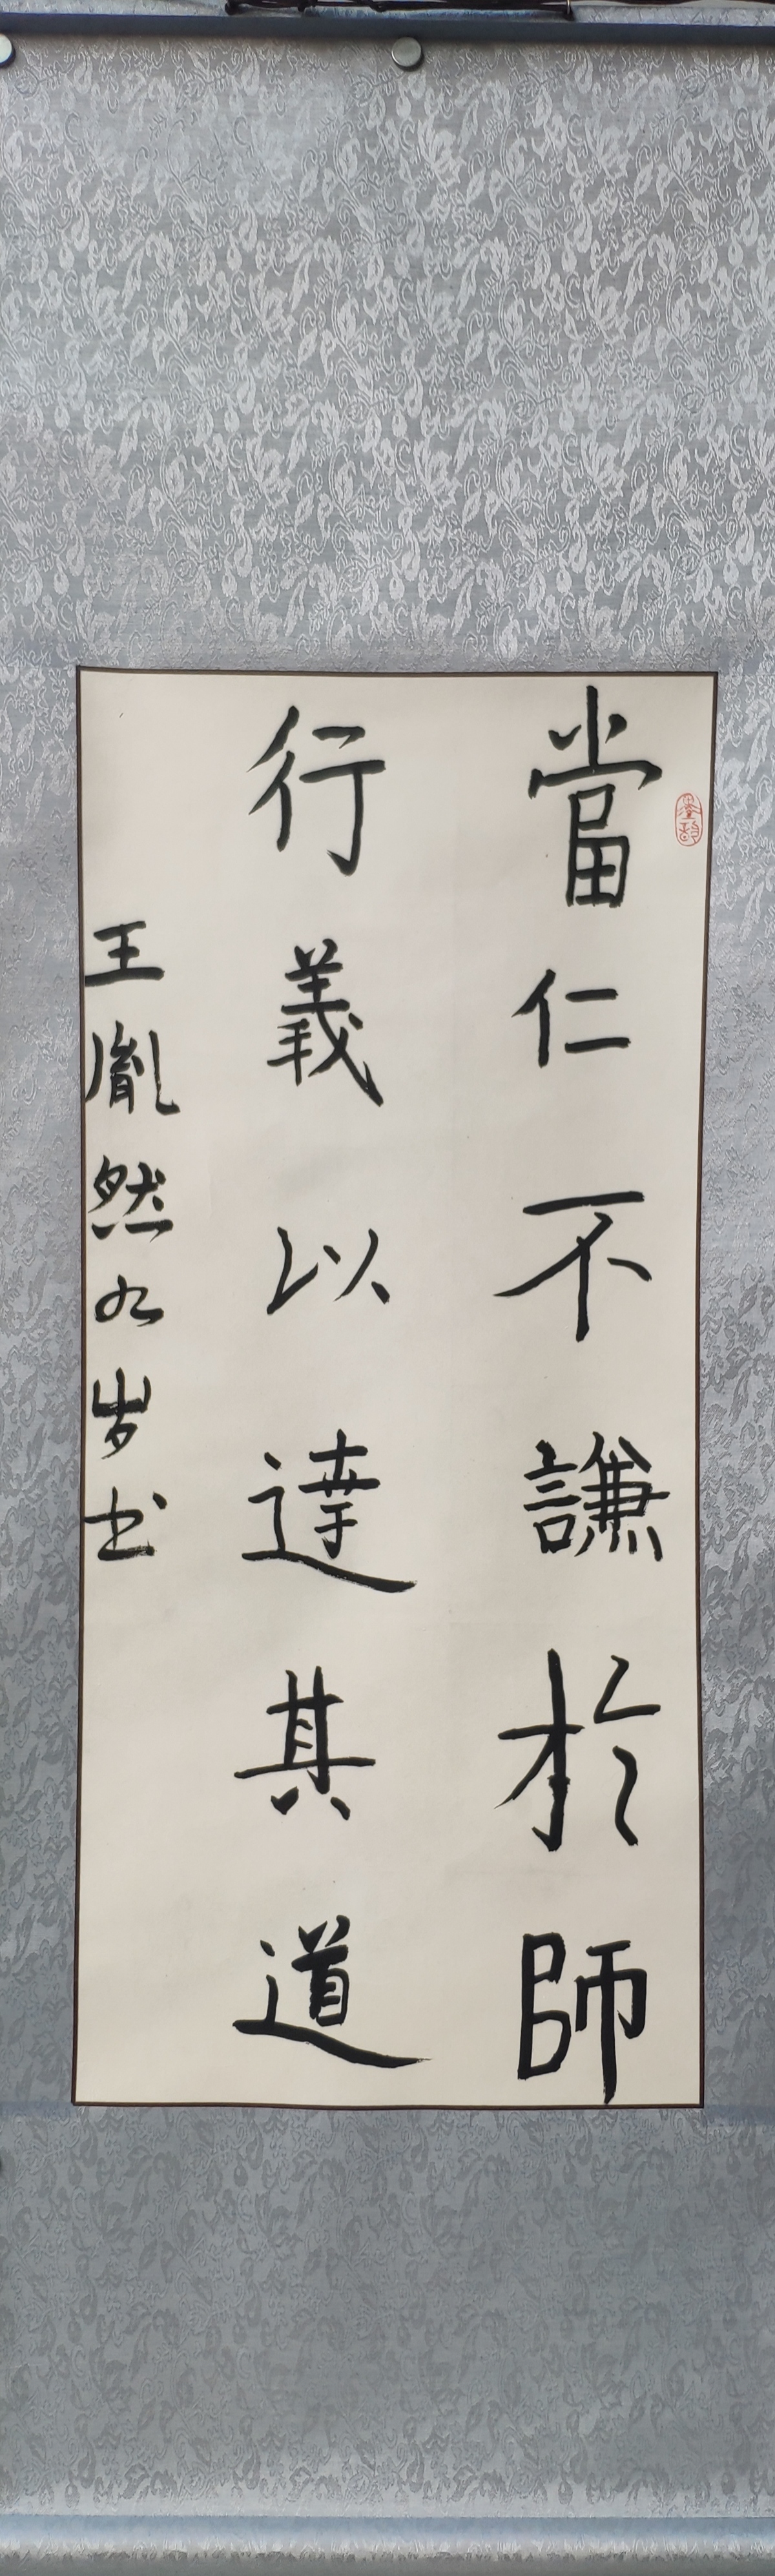 當仁不謙於師
行義以達其道
王胤然九岁书